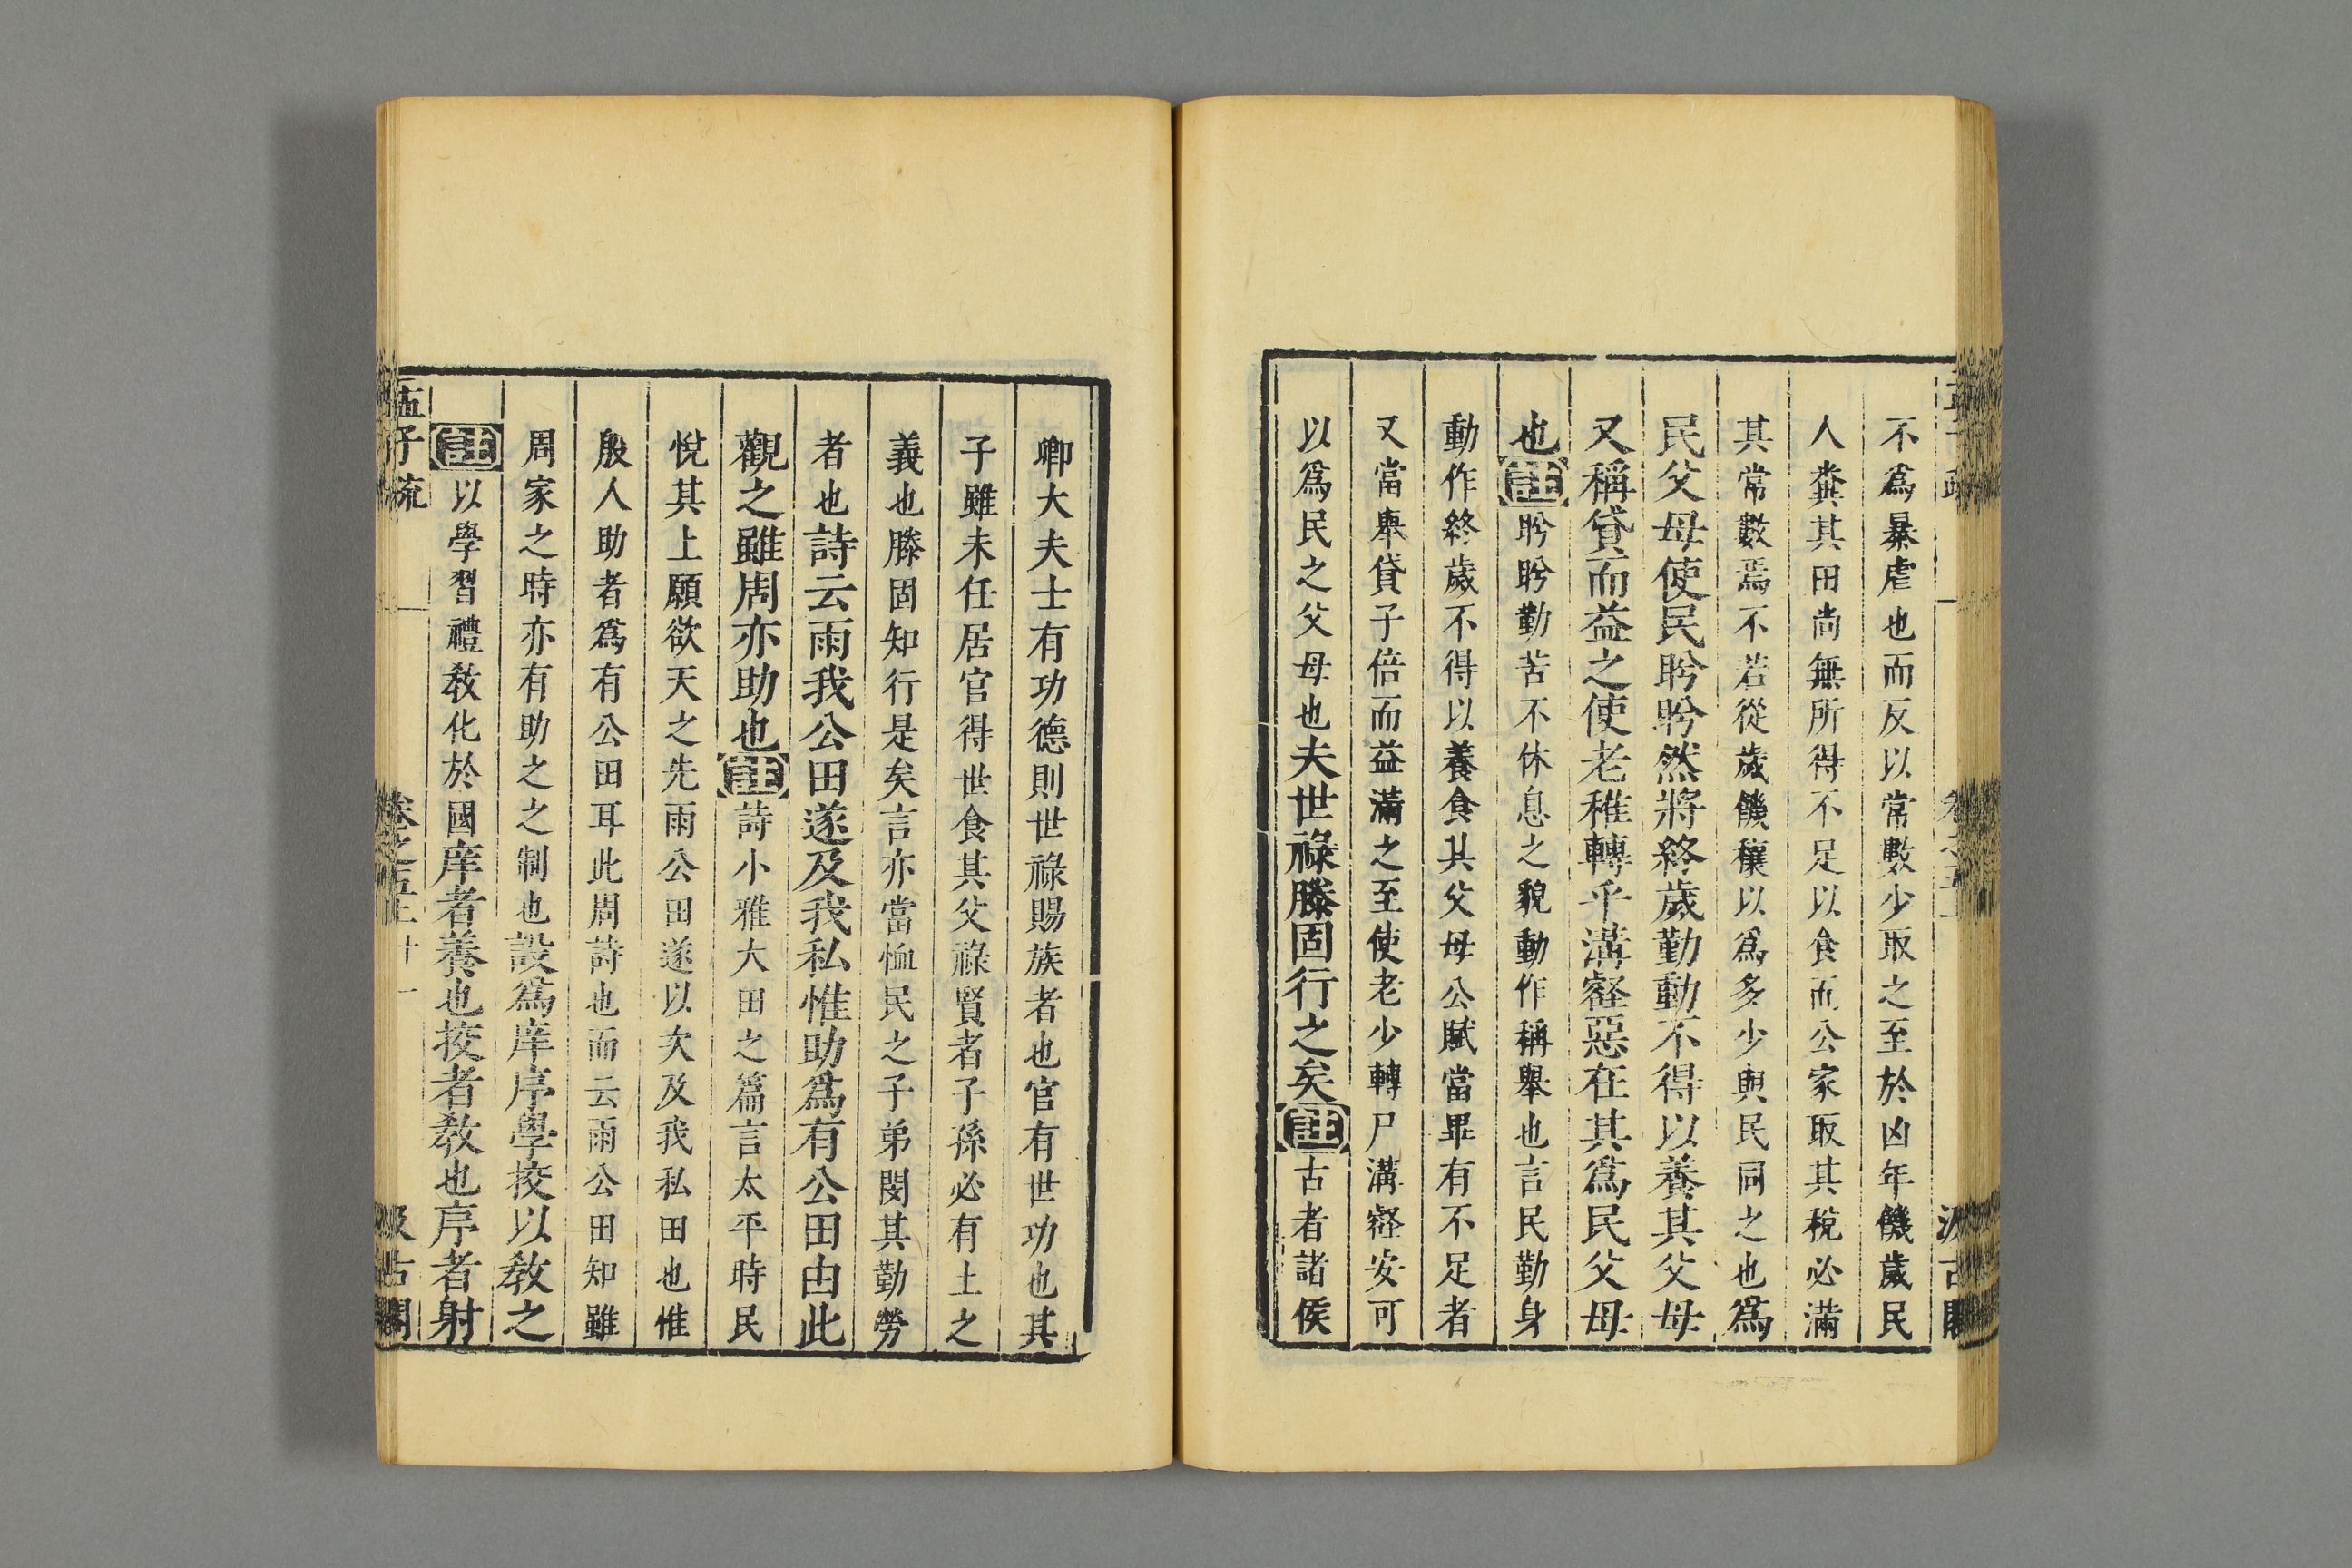 不爲暴虐也而反以常數少取之至於凶年饑歲民
人糞其田尚無所得不足以食而公家取其稅必滿
其常數焉不若從歲饑穰以爲多少與民同之也爲
民父母使民盻盻然將終歲勤動不得以養其父母
又稱貸而益之使老稚轉乎溝壑惡在其爲民父母
也註盻盻勤苦不休息之貌動作稱舉也言民勤身
動作終歲不得以養食其父母公賦當畢有不足者
又當舉貸子倍而益滿之至使老少轉尸溝壑安可
以爲民之父母也夫世祿滕固行之矣註古者諸侯
卿大夫士有功德則世祿賜族者也官有世功也其
子雖未任居官得世食其父祿賢者子孫必有土之
義也滕固知行是矣言亦當恤民之子弟閔其勤勞
者也詩云雨我公田遂及我私惟助爲有公田由此
觀之雖周亦助也註詩小雅大田之篇言太平時民
悅其上願欲天之先雨公田遂以次及我私田也惟
殷人助者爲有公田耳此周詩也而云雨公田知雖
周家之時亦有助之之制也設爲庠序學挍以敎之
註以學習禮敎化於國庠者養也挍者敎也序者射
孟子疏 卷之五上 十一 汲古閣